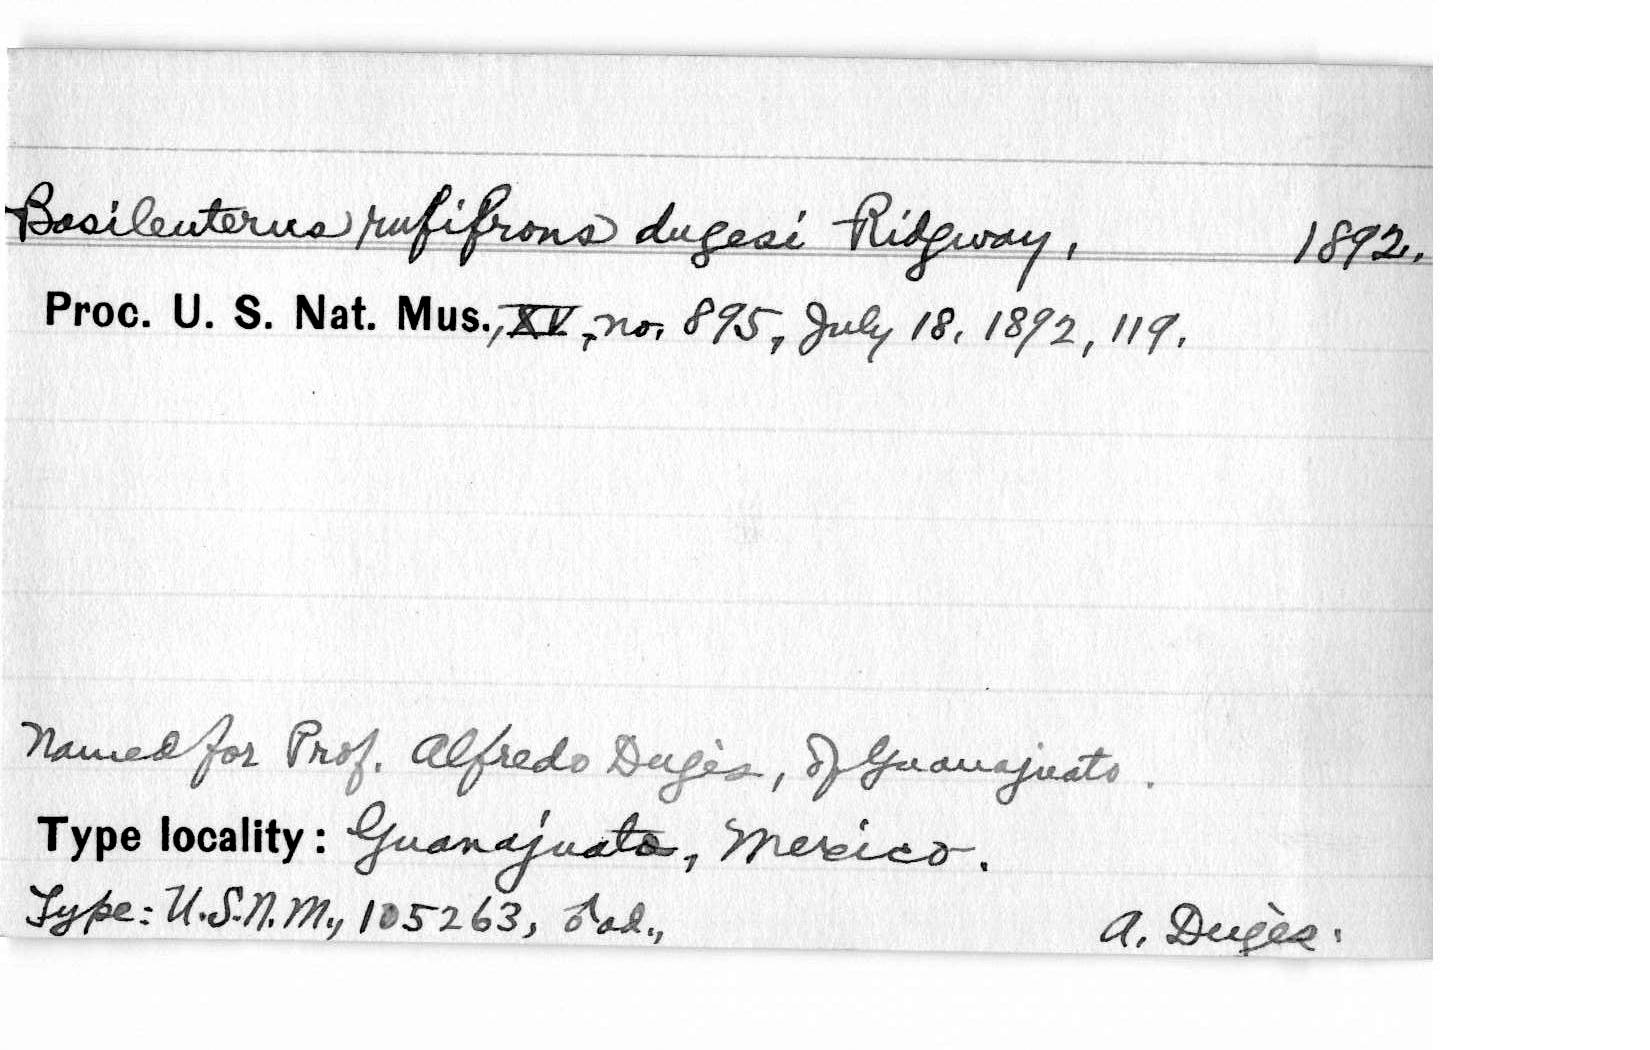 Basileuterus rufifrons dugesi Ridgway, 1892.
Proc. U. S. Nat. Mus., XV, no. 895, July 18, 1892, 119.
Named for Prof. Alfredo Dugès, of Guanajuato.
Type locality: Guanajuato, Mexico.
Type: U.S.N.M., 105263, ♂ ad., A. Dugès.